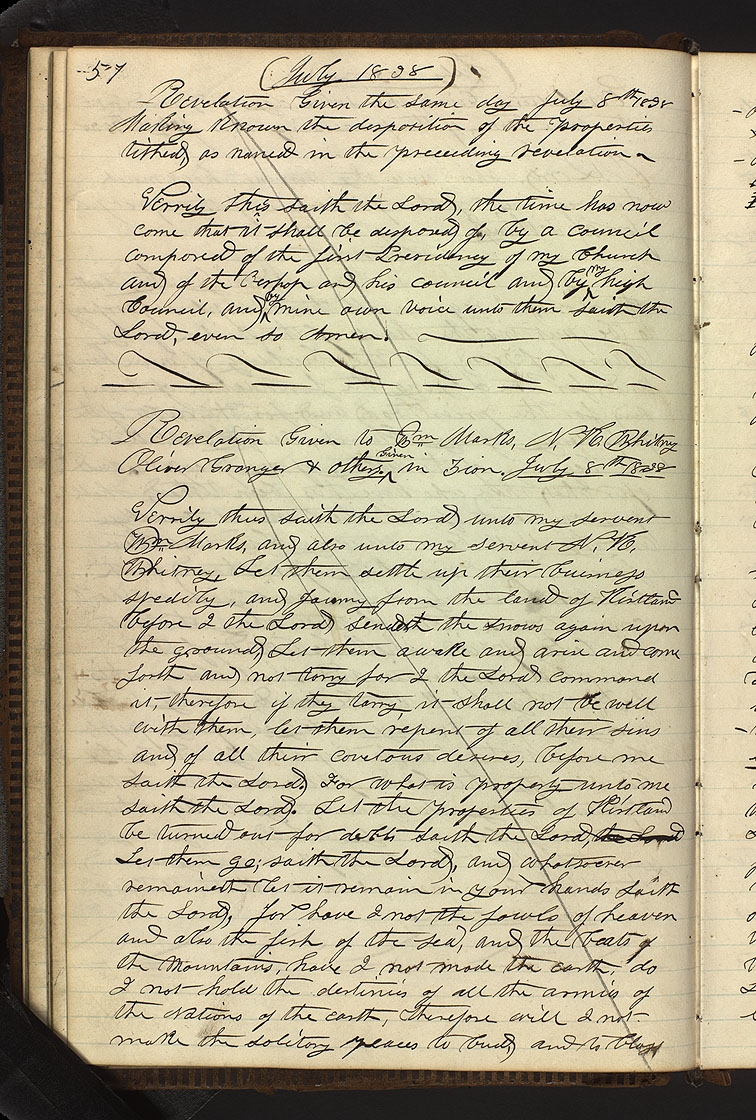 57
(July 1838)
Revelation Given the same day July 8th 1838
Making known the disposition of the properties
tithed, as named in the preceeding revelation—
Verrily thus saith the Lord, the time has now
come that it shall be disposed of, by a council
composed of the first Presidency of my Church
and of the Bishop and his council and by my high
Council, and by mine own voice unto them saith the
Lord, even so Amen.
Revelation Given to Wm Marks, N. K. Whitney
Oliver Granger & others. Given in Zion, July 8th 1838
Verrily thus saith the Lord unto my servent
Wm Marks, and also unto my servent N. K.
Whitney, Let them settle up their buisness
spedily, and journy from the land of Kirtland
before I the Lord sendeth the snows again upon
the ground, Let them awake and arise and come
forth and not tarry for I the Lord command
it, therefore if they tarry, it shall not be well
with them, let them repent of all their sins
and of all their covetous desires, before me
saith the Lord, For what is property unto me
saith the Lord. Let the properties of Kirtland
be turned out for debts saith the Lord, the Lord
Let them go; saith the Lord, and whatsoever
remaineth let it remain in your hands saith
the Lord, for have I not the fowls of heaven
and also the fish of the sea, and the beats of
the Mountains, have I not made the earth, do
I not hold the destinies of all the armies of
the Nations of the earth, therefore will I not
make the solitory places to bud, and to bloss